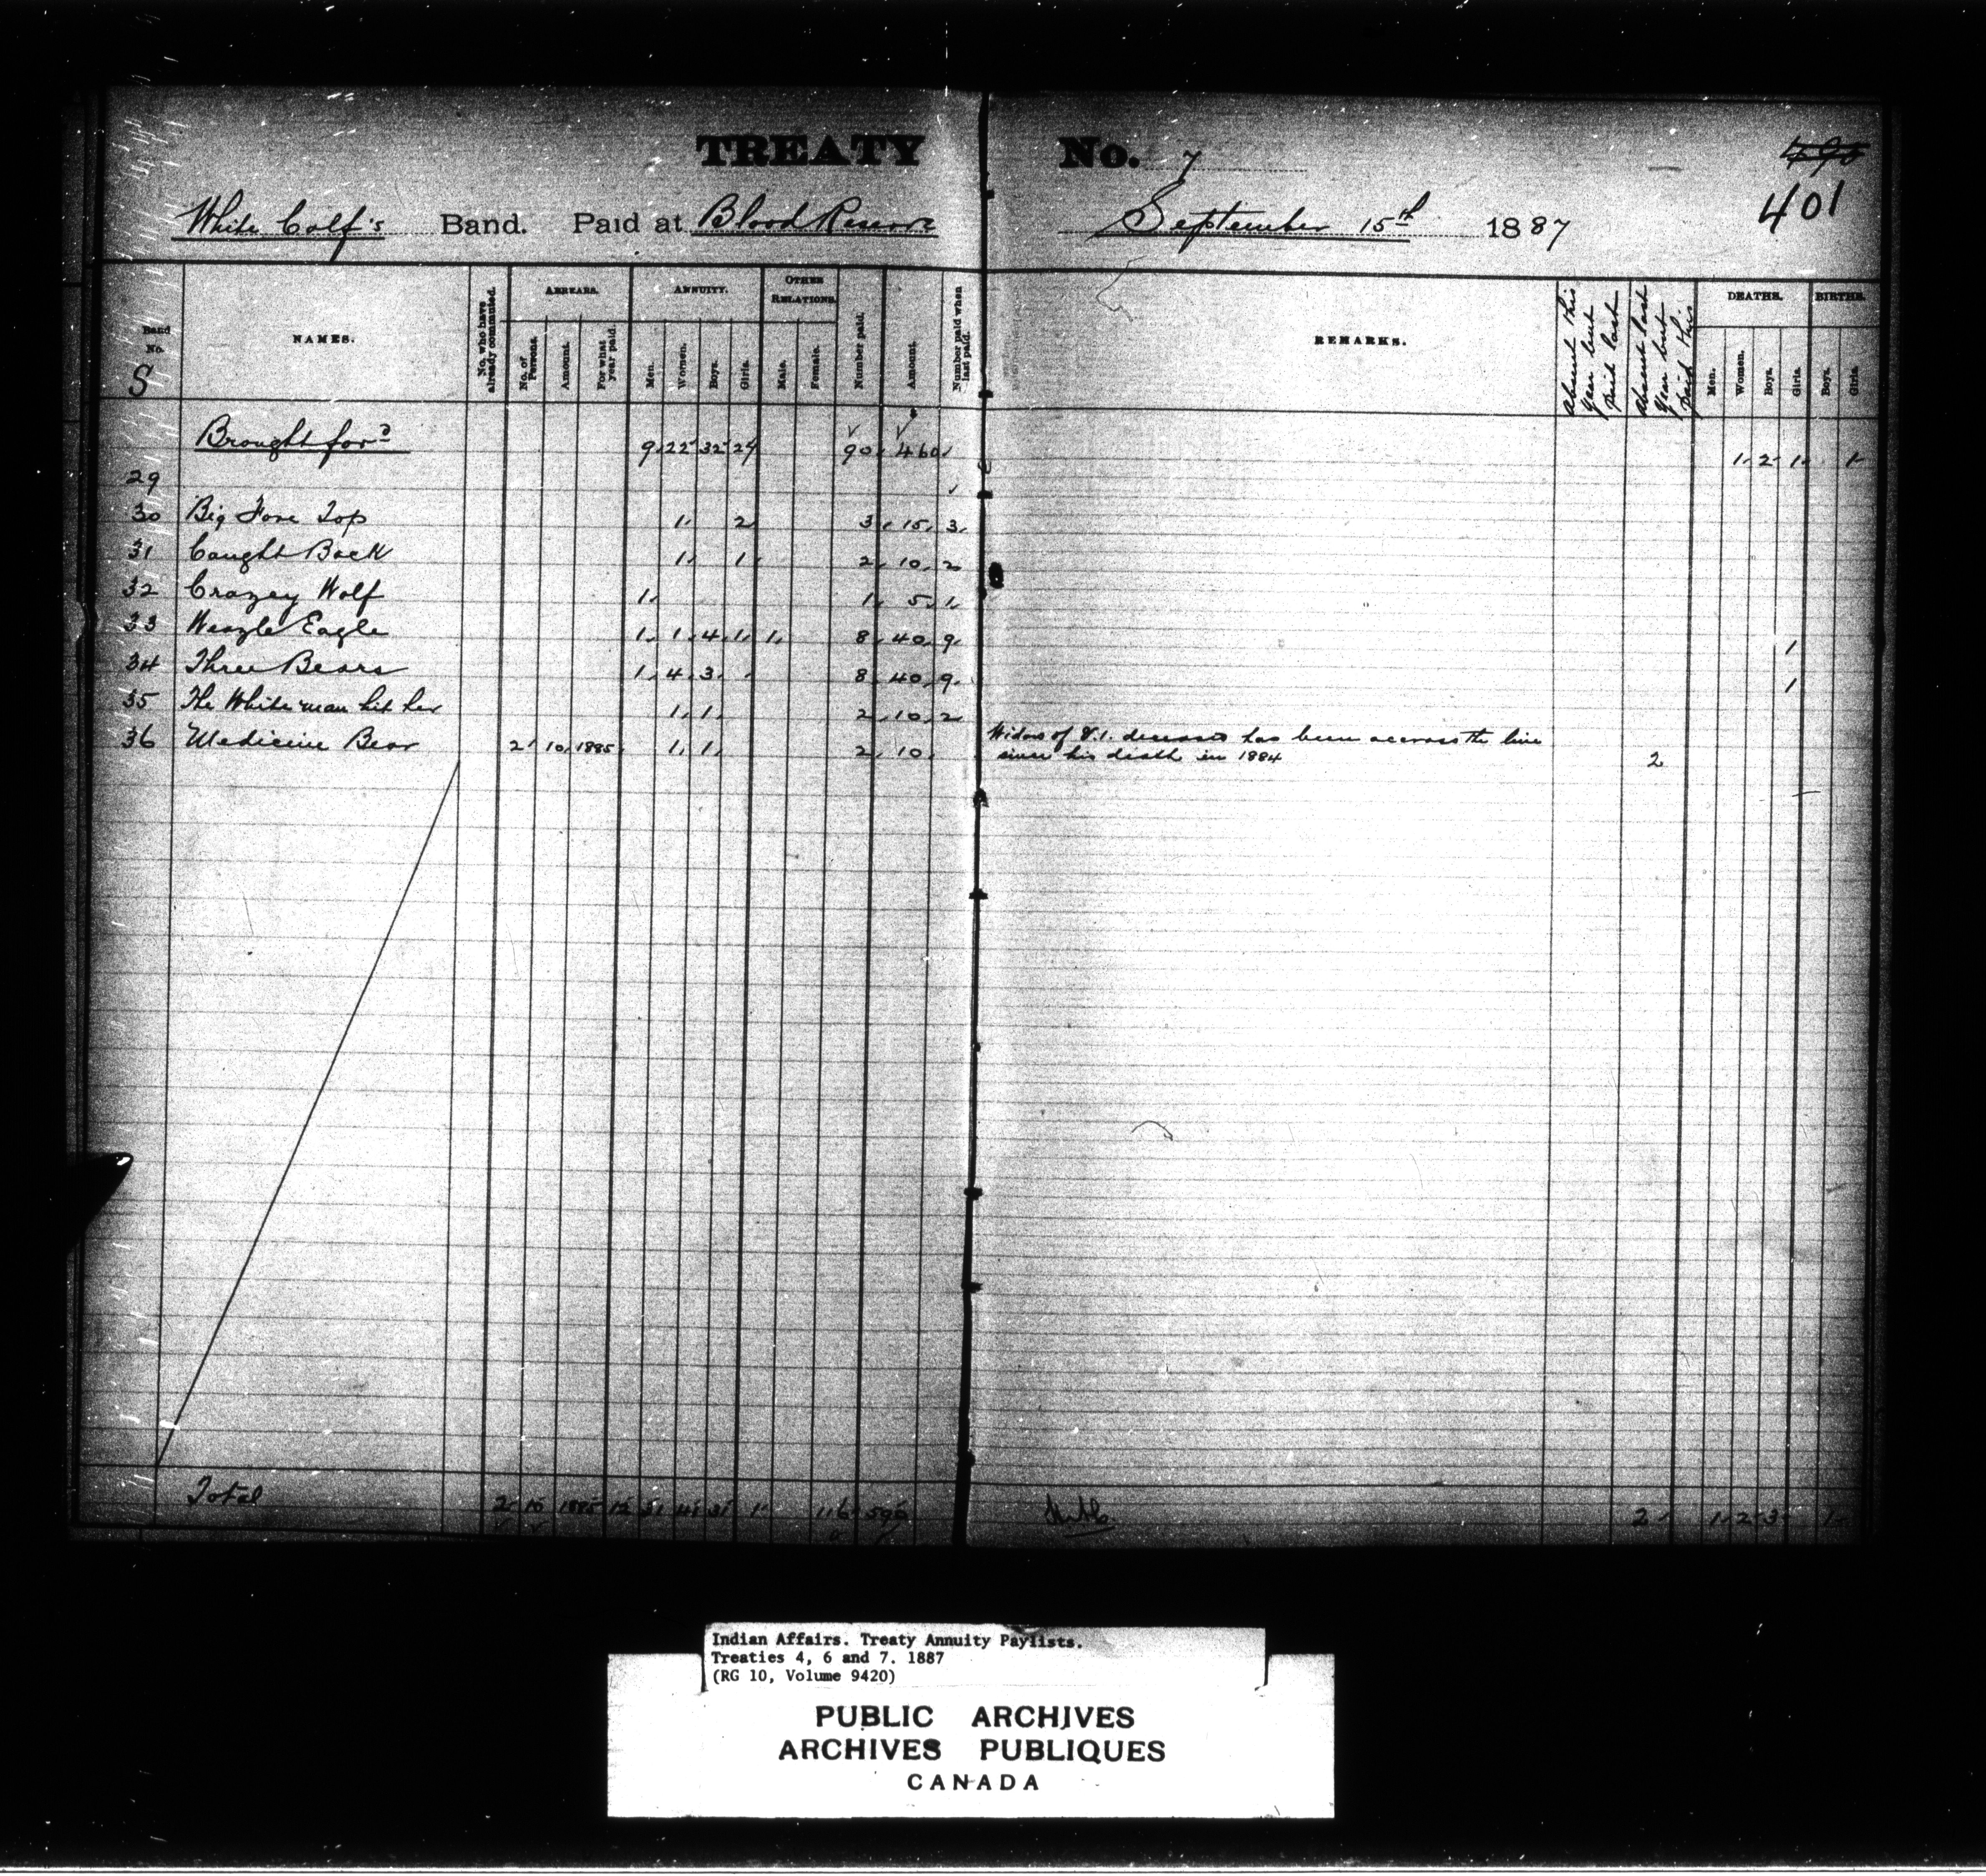 TREATY No. 7
401
White Calf's Band. Paid at Blood Reserve September 15th 1887
Band No. S
NAMES.
No. who have already commuted.
ARREARS.
No. of Persons.
Amount.
For what year paid.
ANNUITY.
Men.
Women.
Boys.
Girls.
OTHER RELATIONS.
Male.
Female.
Number paid.
Amount.
Number paid when last paid.
REMARKS.
Absent this year but paid last
Absent last year but paid this
DEATHS.
Men.
Women.
Boys.
Girls.
BIRTHS.
Boys.
Girls.
Brought ford 9 22 32 27 90 460 1 2 1 1
29
30 Big Fore Top 1 2 3 15 3
31 Caught Back 1 1 2 10 2
32 Crazey Wolf 1 1 5 1
33 Weazle Eagle 1 1 4 1 1 8 40 9 1
34 Three Bears 1 4 3 8 40 9 1
35 The White man hit her 1 1 2 10 2
36 Medicine Bear 2 10 1885 1 1 2 10 Widow of deceased has been accross the line
since his death in 1884 2
Total 2 10 1885 12 31 41 31 1 116 595 2 1 2 3 1
Indian Affairs. Treaty Annuity Paylists.
Treaties 4, 6 and 7. 1887
(RG 10, Volume 9420)
PUBLIC ARCHIVES
ARCHIVES PUBLIQUES
CANADA